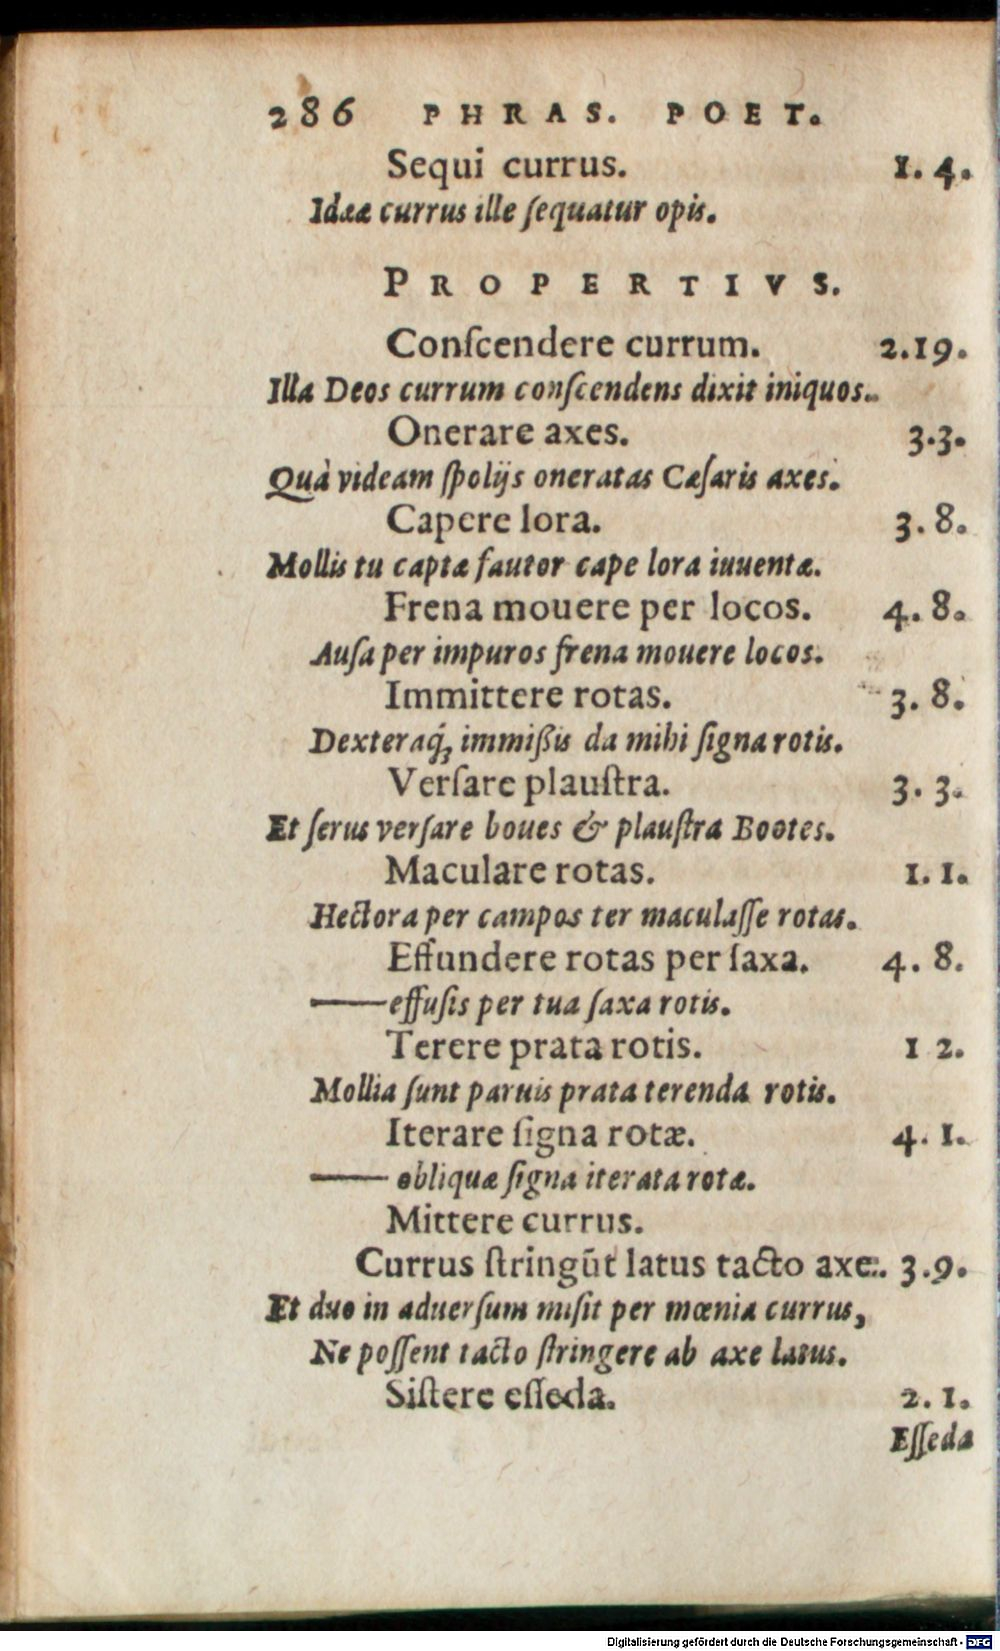 286 PHRAS. POET.
Sequi currus. 1. 4.
Idææ currus ille ſequatur opis.
PROPERTIVS.
Conſcendere currum. 2.19.
Illa Deos currum conſcendens dixit iniquos.
Onerare axes. 3.3.
Quà videam ſpolijs oneratas Cæſaris axes.
Capere lora. 3. 8.
Mollis tu captæ fautor cape lora iuuentæ.
Frena mouere per locos. 4. 8.
Auſa per impuros frena mouere locos.
Immittere rotas. 3. 8.
Dexteraq́; immißis da mihi ſigna rotis.
Verſare plauſtra. 3. 3.
Et ſerus verſare boues & plauſtra Bootes.
Maculare rotas. 1. 1.
Hectora per campos ter maculaſſe rotas.
Effundere rotas per ſaxa. 4. 8.
—effuſis per tua ſaxa rotis.
Terere prata rotis. 1 2.
Mollia ſunt paruis prata terenda rotis.
Iterare ſigna rotæ. 4. 1.
— obliquæ ſigna iterata rotæ.
Mittere currus.
Currus ſtringũt latus tacto axe. 3.9.
Et duo in aduerſum miſit per mœnia currus,
Ne poſſent tacto ſtringere ab axe latus.
Siſtere eſſeda. 2. 1.
Eſſeda
Digitalisierung gefördert durch die Deutsche Forschungsgemeinschaft - DFG